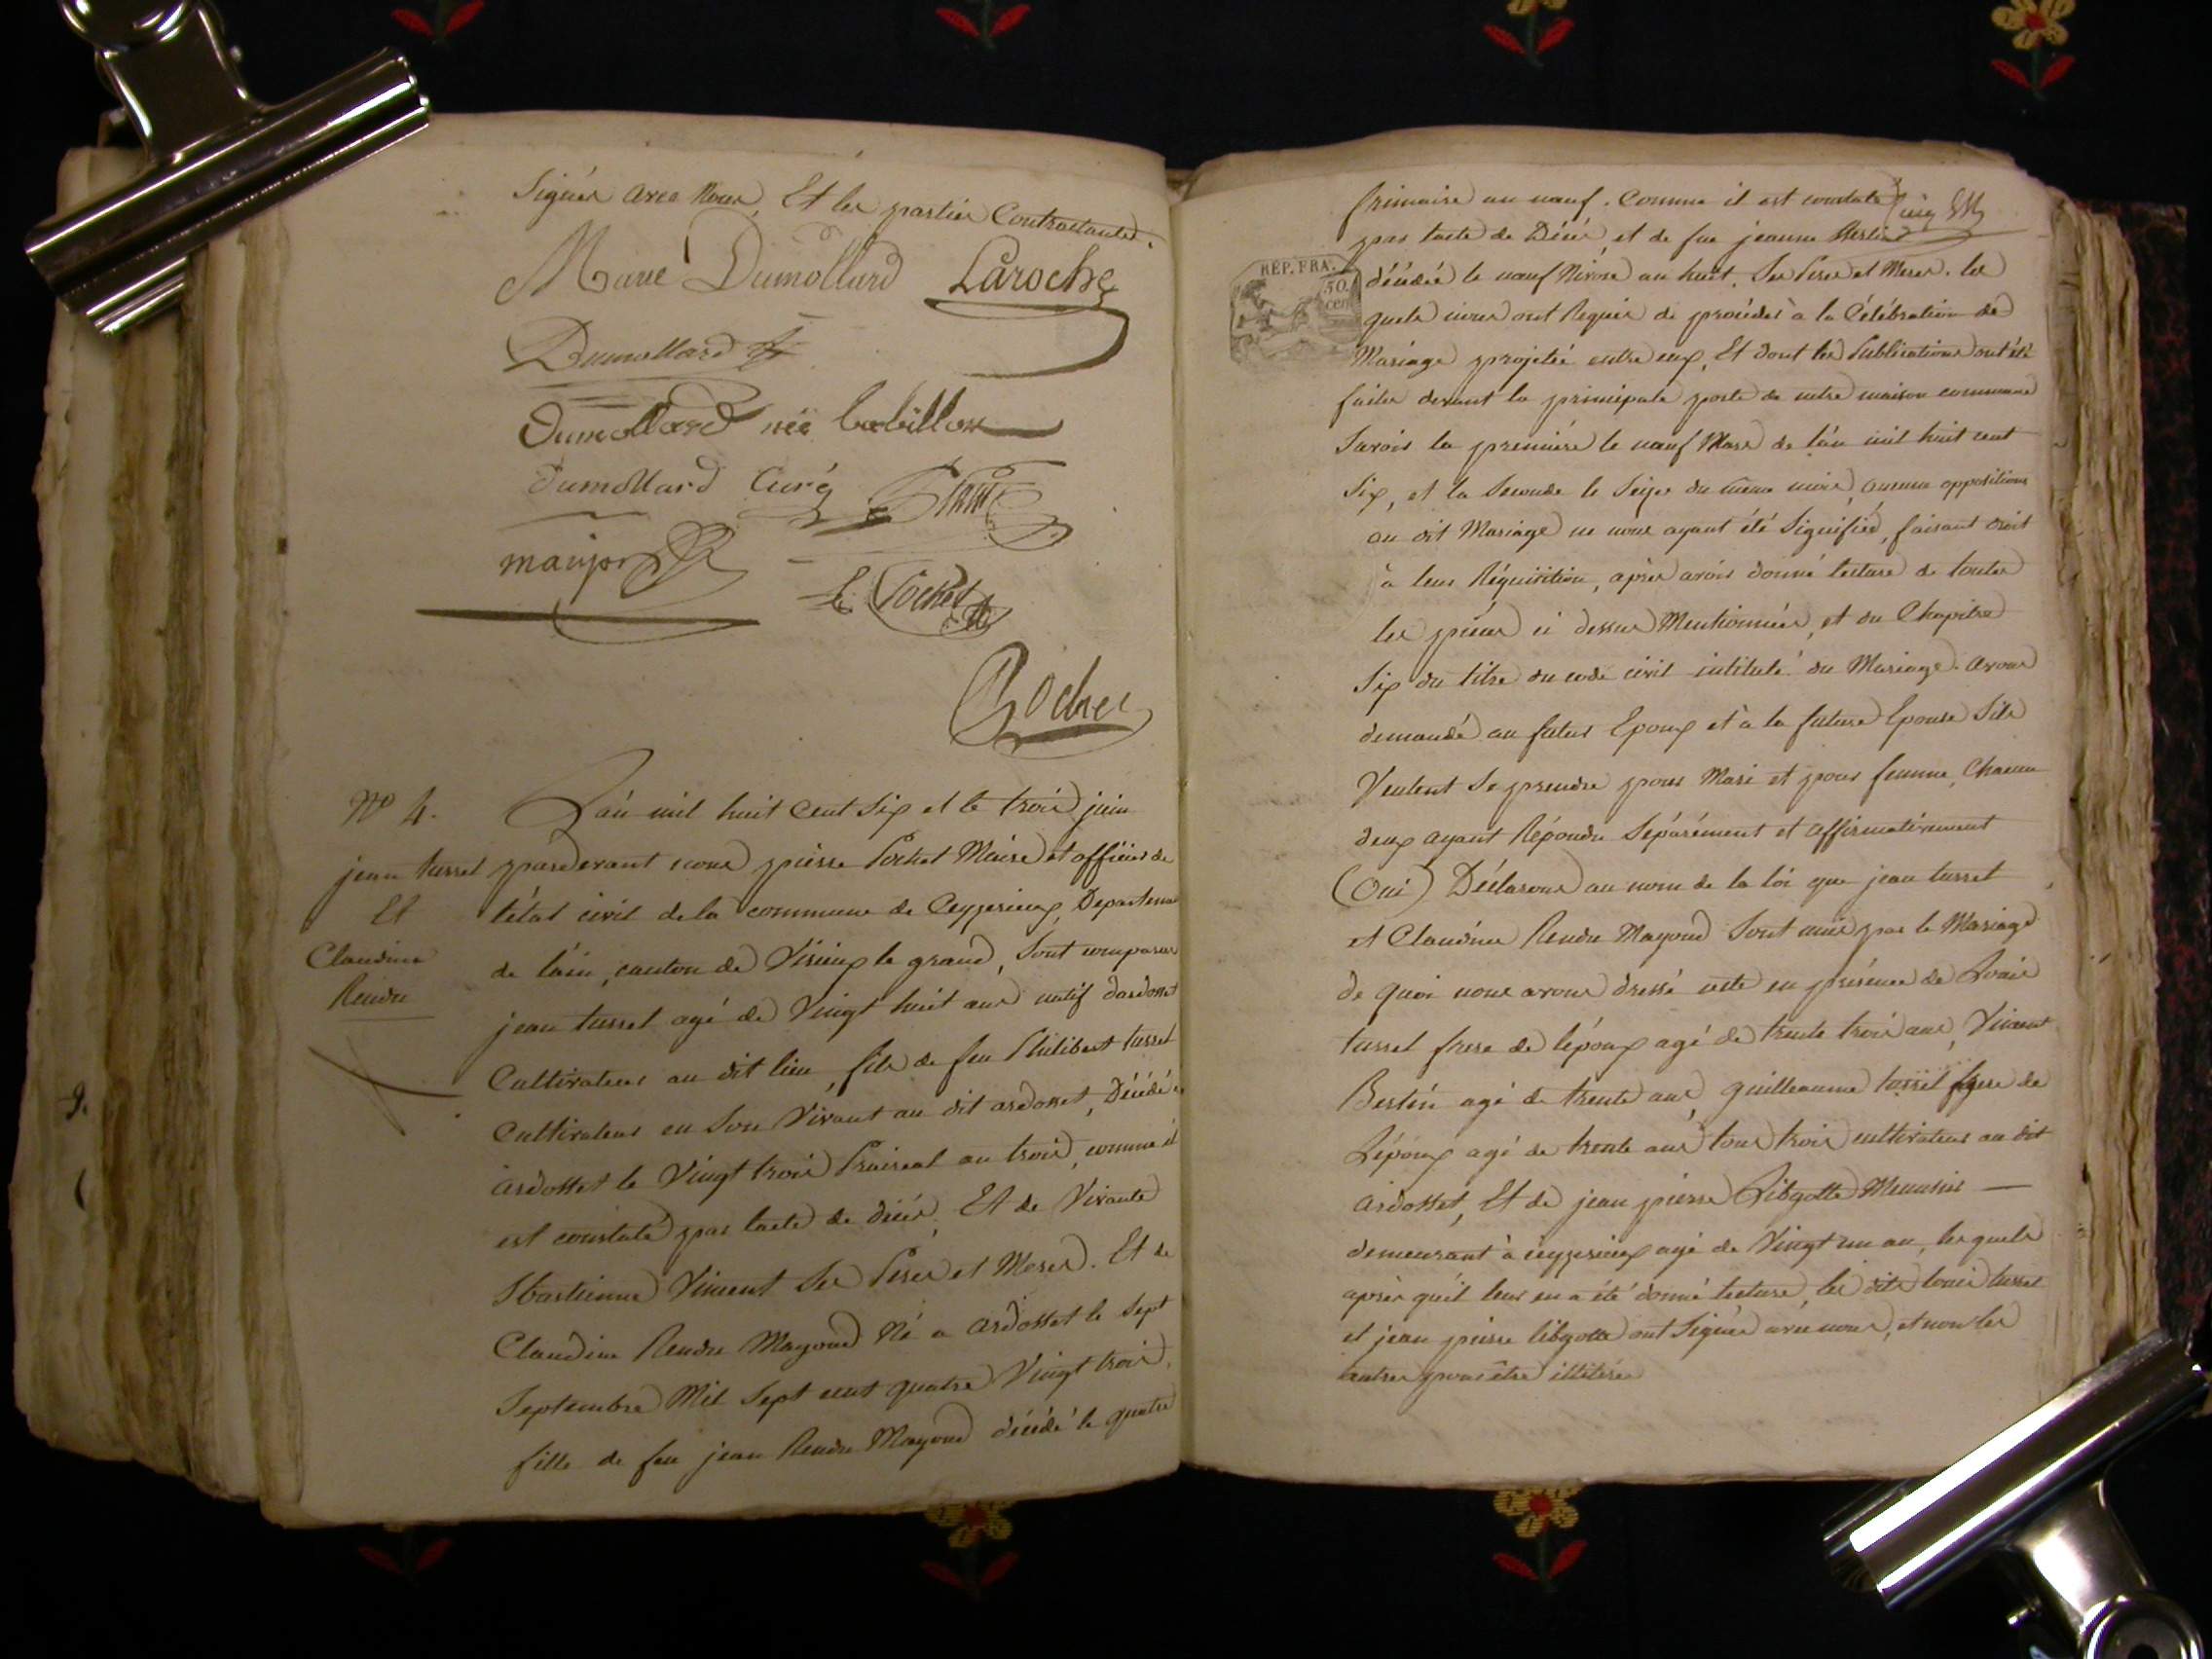 Signés avec Nous, Et les parties Contractantes.
Marie Dumollard Laroche
Dumollard
Dumollard née babillon
Dumollard Curé
maujor
Pochet
Pochet
N° 4.
jean tusset
Et
Claudine
Rendu
L'an mil huit Cent Six et le trois juin
pardevant nous pierre Pochet Maire et officier de
l'état civil de la commune de Ceyzerieux, Departement
de lain, canton de Virieux le grand, Sont comparus
jean tusset agé de Vingt huit ans natif dardosset
Cultivateur au dit lieu, fils de feu Philibert tusset
Cultivateur en Son Vivant au dit ardosset, Décédé a
ardosset le Vingt trois Prairial an trois, comme il
est constaté par lacte de décès, Et de Vivante
Vincent Ses Peres et Meres. Et de
Claudine Rendu Mayoud Né a ardosset le Sept
Septembre Mil Sept cent quatre Vingt trois,
fille de feu jean Rendu Mayoud décédé le quatre
frimaire an neuf. Comme il est constaté
par lacte de Décès, et de feu jeanne Berlin
REP. FRA.
50.
cen
décédée le neuf Nivose an huit. Ses Peres et Meres. les
quels nous ont Requis de procéder à la Célébration de
Mariage projetté entre eux, Et dont les Publications ont été
faites devant la principale porte de notre maison commune
Savoir la premiére le neuf Mars de l'an mil huit cent
Six, et la Seconde le Seize du même mois, aucune opposition
au dit Mariage ne nous ayant été Signifiée, faisant droit
à leur Réquisition, après avoir donné lecture de toutes
les pièces ci dessus Mentionnées, et du Chapitre
Six du titre du code civil intitulé du Mariage. avons
demandé au futur Epoux et à la future Epouse Sils
Veulent Se prendre pour Mari et pour femme, Chacun
deux ayant Répondu Sepárément et affirmativement
(Oui) Déclarons au nom de la loi que jean tusset
et Claudine Rendu Mayoud Sont unis par le Mariage
de quoi nous avons dressé acte en présence de Louis
tusset frere de lépoux agé de trente trois ans, Vincent
Berlin agé de trente ans, guilleaume tusset frere de
Lépoux agé de trente ans tous trois cultivateur au dit
ardosset, Et de jean pierre Libgotte Menusier —
demeurant à ceyzerieux agé de Vingt un an, lesquels
après qu'il leur en a été donné lecture, les dits louis tusset
et jean pierre libgotte ont Signés avec nous, et non les
autres pour être illetérés